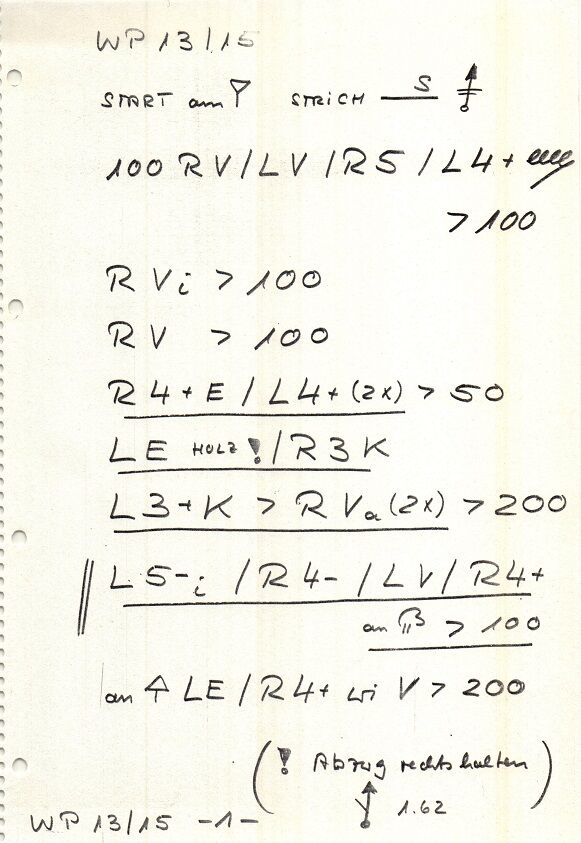 WP 13/15
START am STRICH S
100 RV/LV/R5/L4+
> 100
R Vi > 100
R V > 100
R4+E/L4+(2x) > 50
LE HOLZ !/R3K
L3+K > R Va(2x) > 200
L5-i/R4-/LV/R4+
an > 100
an LE/R4+ wi V > 200
(! Abzug rechts halten)
1.62
WP 13/15 -1-